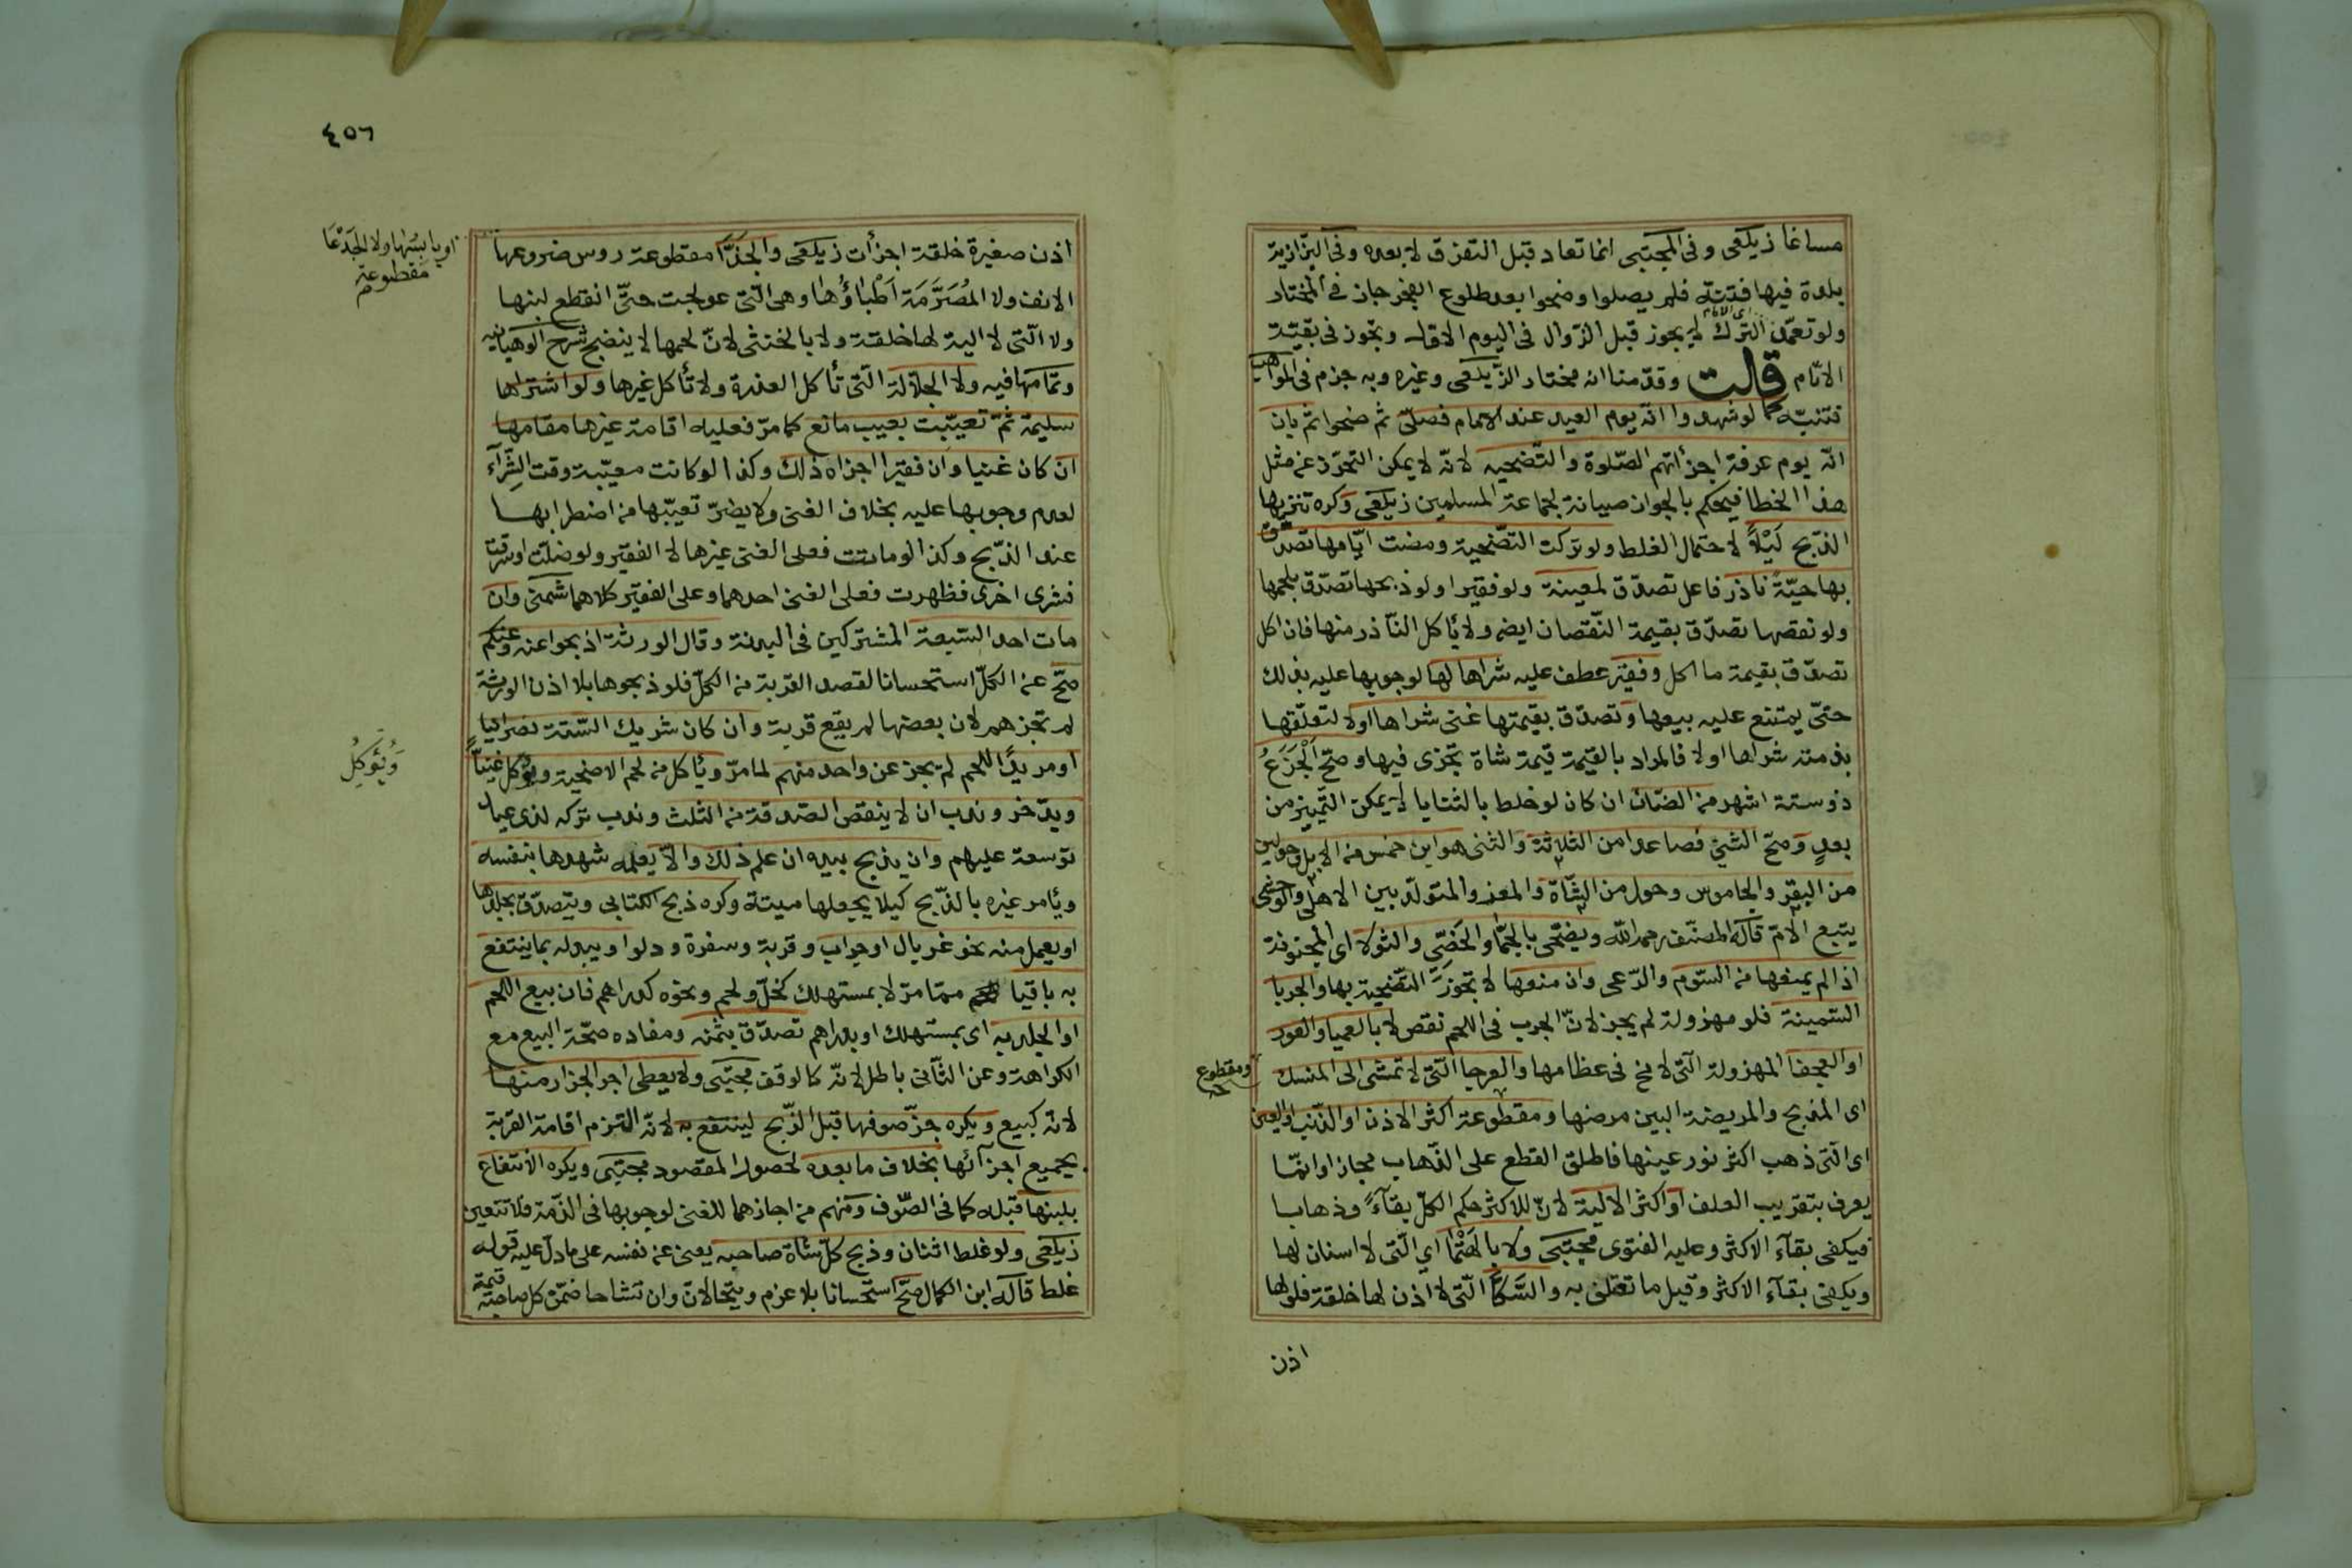 مساغا زيلعى وفى المجتبى انما تعاد قبل التفرق لا بعده وفى البزازية
بلدة فيها فتنة فلم يصلوا وضحوا بعد طلوع الفجر جاز فى المختار
ولو تعمد الترك لم يجز قبل الزوال فى اليوم الاول وتجوز فى بقية
الايام قلت وقدمنا انه مختار الزيلعى وغيره وبه جزم فى المواهب
فتنبه كما لو شهدوا انه يوم العيد عند الامام فصلى ثم ضحوا ثم بان
انه يوم عرفة اجزأتهم الصلوة والتضحيه لانه لا يمكن التحرز عن مثل
هذا الخطا فيحكم بالجواز صيانة لجماعة المسلمين زيلعى وكره تنزيها
الذبح ليلاً لاحتمال الغلط ولو تركت التضحية ومضت ايامها تصدق
بها حية ناذر فاعل تصدق لمعينة ولو فقيرا ولو ذبحها تصدق بلحمها
ولو نقصها تصدق بقيمة النقصان ايضا ولا يأكل الناذر منها فان اكل
تصدق بقيمة ما اكل وفقير عطف عليه شراها لها لوجوبها عليه بذلك
حتى يمتنع عليه بيعها وتصدق بقيمتها غنى شراها اولا لتعلقها
بذمته شراها اولا فالمراد بالقيمة قيمة شاة تجزى فيها وصح الجزع
ذو ستة اشهر من الضان ان كان لو خلط بالثنايا لا يمكن التمييز من
بعد وصح الثنى فصاعدا من الثلاثة والثنى هو ابن خمس من الابل وحولين
من البقر والجاموس وحول من الشاة والمعز والمتولد بين الاهلى والوحشى
يتبع الام قاله المصنف رحمه الله ويضحى بالجما والخصى والثولا اى المجنونة
اذا لم يمنعها من السوم والرعى وان منعها لا تجوز التضحية بها والجربا
السمينة فلو مهزولة لم يجز لان الجرب فى اللحم نقص لا بالعميا والعور
او العجفا المهزولة التى لا مخ فى عظامها والعرجا التى لا تمشى الى المنسك
ومقطوع
اى المذبح والمريضة البين مرضها ومقطوعة اكثر الاذن او الذنب او العين
اى التى ذهب اكثر نور عينها فاطلق القطع على الذهاب مجازا وانما
يعرف بتقريب العلف او اكثر الالية لان للاكثر حكم الكل بقآءً وذهابا
فيكفى بقآء الاكثر وعليه الفتوى مجتبى ولا بالهتما اى التى لا اسنان لها
ويكفى بقآء الاكثر وقيل ما تعتلف به والسكا التى لا اذن لها خلقة فلو لها
اذن
٤٥٦
اذن صغيرة خلقة اجزأت زيلعى والجذا مقطوعة روس ضروعها
او يابستها ولا الجدعا
مقطوعة
الانف ولا المصرمة اطباؤها وهى التى عولجت حتى انقطع لبنها
ولا التى لا الية لها خلقة ولا بالخنثى لان لحمها لا ينضج شرح الوهبانيه
وتمامها فيه ولا الجلالة التى تأكل العذرة ولا تأكل غيرها ولو اشتراها
سليمة ثم تعيبت بعيب مانع كما مر فعليه اقامة غيرها مقامها
ان كان غنيا وان فقيرا اجزاه ذلك وكذا لو كانت معيبة وقت الشرآء
لعدم وجوبها عليه بخلاف الغنى ولا يضر تعيبها من اضطرابها
عند الذبح وكذا لو ماتت فعلى الغنى غيرها لا الفقير ولو ضلت او سرقت
فشرى اخرى فظهرت فعلى الغنى احدهما وعلى الفقير كلاهما شمنى وان
مات احد السبعة المشتركين فى البدنة وقال الورثة اذبحوا عنه وعنكم
صح عن الكل استحسانا لقصد القربة من الكل فلو ذبحوها بلا اذن الورثة
لم تجزهم لان بعضها لم يقع قربة وان كان شريك الستة نصرانيا
او مريدا اللحم لم يجز عن واحد منهم لما مر ويأكل من لحم الاضحية ويؤكل غنياً
وَيُؤكِلُ
ويدخر وندب ان لا ينقص الصدقة من الثلث وندب تركه لذى عيال
توسعة عليهم وان يذبح بيده ان علم ذلك والا يعلمه شهدها بنفسه
ويأمر غيره بالذبح كيلا يجعلها ميتة وكره ذبح الكتابى ويتصدق بجلدها
او يعمل منه نحو غربال او جراب وقربة وسفرة ودلوا ويبدله بما ينتفع
به باقيا مما مر لا بمستهلك كخل ولحم ونحوه كدراهم فان بيع اللحم
او الجلد به اى بمستهلك او بدراهم تصدق بثمنه ومفاده صحة البيع مع
الكراهة وعن الثانى باطل لانه كالوقف مجتبى ولا يعطى اجر الجزار منها
لانه كبيع ويكره جز صوفها قبل الذبح لينتفع به لانه التزم اقامة القربة
بجميع اجزآئها بخلاف ما بعده لحصول المقصود مجتبى ويكره الانتفاع
بلبنها قبله كما فى الصوف ومنهم من اجازهما للغنى لوجوبها فى الذمة فلا تتعين
زيلعى ولو غلط اثنان وذبح كل شاة صاحبه يعنى عن نفسه على ما دل عليه قوله
غلط قاله ابن الكمال صح استحسانا بلا غرم ويتحالان وان تشاحا ضمن كل صاحبه قيمة